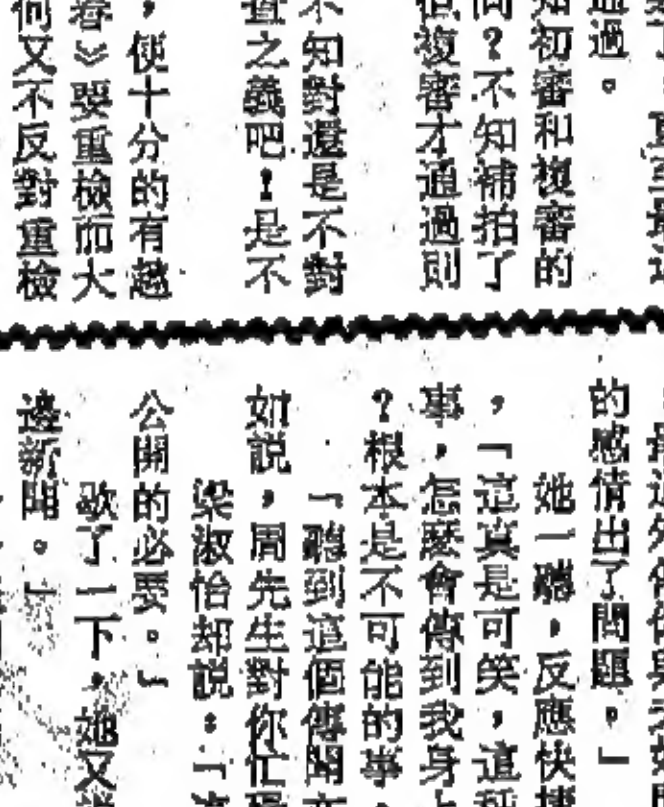 通過。
初審和複審的
問？不知補拍了
但複審才通過則
不知對還是不對
查之義吧！是不
，便十分的有趣
春》要重檢而大
何又不反對重檢
的感情出了問題。」
她一聽，反應快捷
，「這真是可笑，這種
事，怎麼會傳到我身上
？根本是不可能的事。
「聽到這個傳聞
如說，周先生對你忙
梁淑怡却說：「
公開的必要。」
歇了一下，她又
邊新聞。」